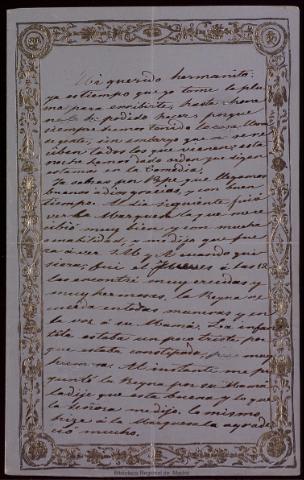 Mi querido hermanito:
ya es tiempo que yo tome la plu
ma para escribirte, hasta ahora
no lo he podido hacer, porque
siempre hemos tenido la casa llena
de gente, sin embargo que no se re
ciben todos los que vienen; esta
noche hemos dado orden que digan
estamos en la Comedia.
Ya sabras por Felipe que llegamos
buenos a dios gracias, y con buen
tiempo. Al dia siguiente fui á
ver la Marquesa la que me re
cibió muy bien y con mucha
amabilidad, y me dijo que fue
ra á ver S.M. y A. cuando qui
siera; fui el Jueves á las
las encontré muy crecidas y
muy hermosas, la Reyna se
acuerda en todas maneras y en
la voz á su Mamá. La infan
tita estaba un poco triste por
que estaba constipada, muy
hermosa: Al instante me pre
guntó la Reyna por su Mamá
la dije que esta buena y lo que
la Señora me dijo, lo mismo
hize á la Marquesa la agrade
ció mucho.
Biblioteca Regional de Madrid